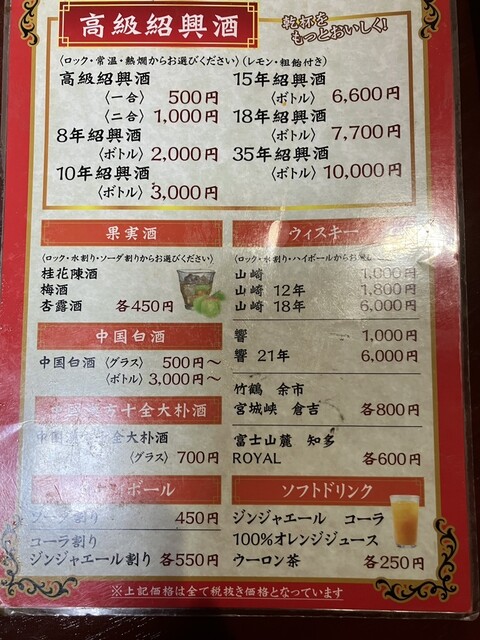 高級紹興酒
乾杯を
もっとおいしく!
〈ロック・常温・熱燗からお選びください〉〈レモン・粗飴付き〉
高級紹興酒
〈一合〉 500円
〈二合〉 1,000円
8年紹興酒
〈ボトル〉 2,000円
10年紹興酒
〈ボトル〉 3,000円
15年紹興酒
〈ボトル〉 6,600円
18年紹興酒
〈ボトル〉 7,700円
35年紹興酒
〈ボトル〉 10,000円
果実酒
〈ロック・水割り・ソーダ割りからお選びください〉
桂花陳酒
梅酒
杏露酒 各450円
中国白酒
中国白酒〈グラス〉 500円〜
〈ボトル〉 3,000円〜
方十全大朴酒
中国 全大朴酒
〈グラス〉 700円
ボール
ソーダ割り 450円
コーラ割り
ジンジャエール割り 各550円
ウィスキー
〈ロック・水割り・ハイボールからお
山崎 1,000円
山崎 12年 1,800円
山崎 18年 6,000円
響 1,000円
響 21年 6,000円
竹鶴 余市
宮城峡 倉吉 各800円
富士山麓 知多
ROYAL 各600円
ソフトドリンク
ジンジャエール コーラ
100%オレンジジュース
ウーロン茶 各250円
※上記価格は全て税抜き価格となっています